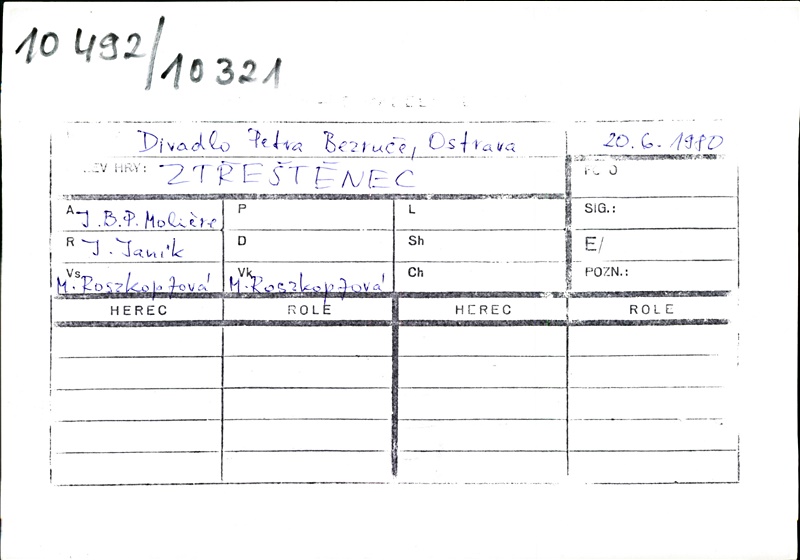 10 492/10 321
Divadlo Petra Bezruče, Ostrava 20.6.1980
ZEV HRY: ZTŘEŠTĚNEC
A J.B.P. Molière P L SIG.:
R J. Janik D Sh E/
Vs M. Roszkopfová Vk M. Roszkopfová Ch POZN.:
HEREC ROLE HEREC ROLE